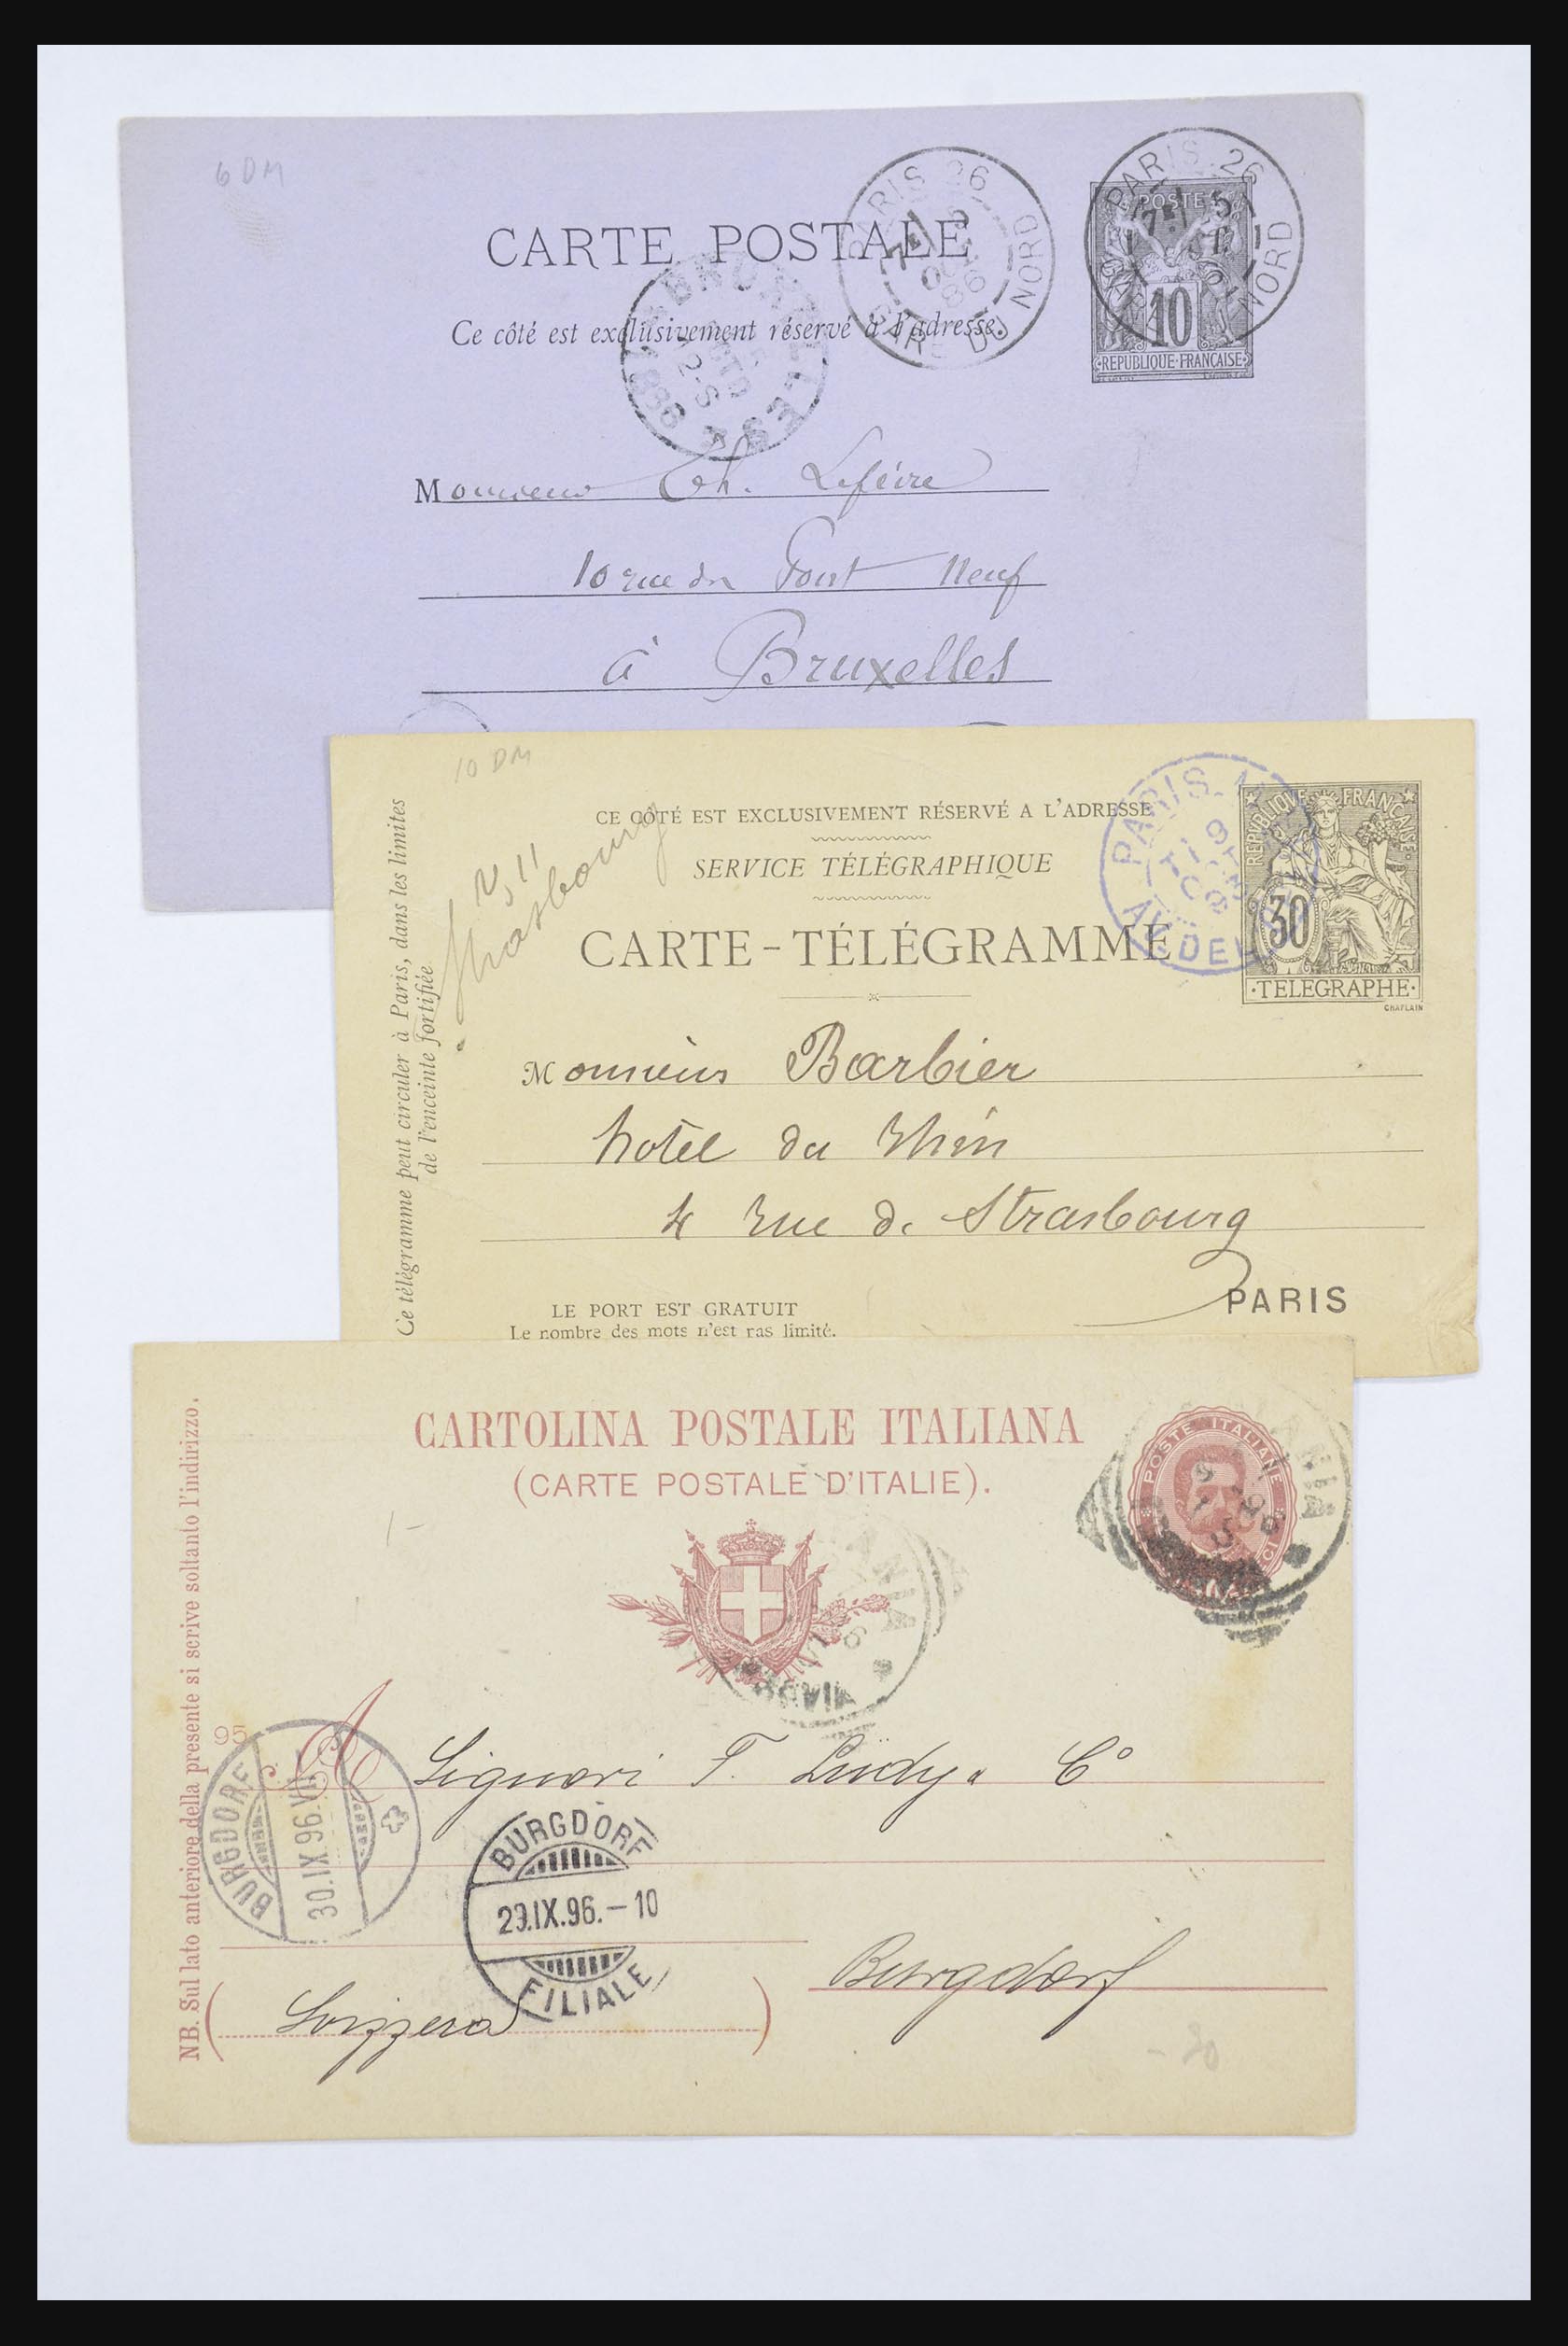 6 DM
CARTE POSTALE
Ce côté est exclusivement réservé à l'adresse.
PARIS 26
GARE DU NORD
PARIS 26
NORD
POSTES
10
REPUBLIQUE FRANÇAISE
BRUXELLES
1886
Monsieur Ch. Lefévre
10 rue du Pont Neuf
à Bruxelles
10 DM
CE CÔTÉ EST EXCLUSIVEMENT RÉSERVÉ A L'ADRESSE
SERVICE TÉLÉGRAPHIQUE
CARTE-TÉLÉGRAMME
Strasbourg
PARIS
REPUBLIQUE FRANÇAISE
30
·TELEGRAPHE·
CHAPLAIN
Ce télégramme peut circuler à Paris, dans les limites
de l'enceinte fortifiée
Monsieur Barbier
hotel du Rhin
4 Rue de Strasbourg
PARIS
LE PORT EST GRATUIT
Le nombre des mots n'est pas limité.
CARTOLINA POSTALE ITALIANA
(CARTE POSTALE D'ITALIE).
POSTE ITALIANE
NB. Sul lato anteriore della presente si scrive soltanto l'indirizzo.
95
A Signori F. Lüdy & Cº
BURGDORF
30.IX.96.VII
BURGDORF
29.IX.96.–10
FILIALE
Burgdorf
(Svizzera)